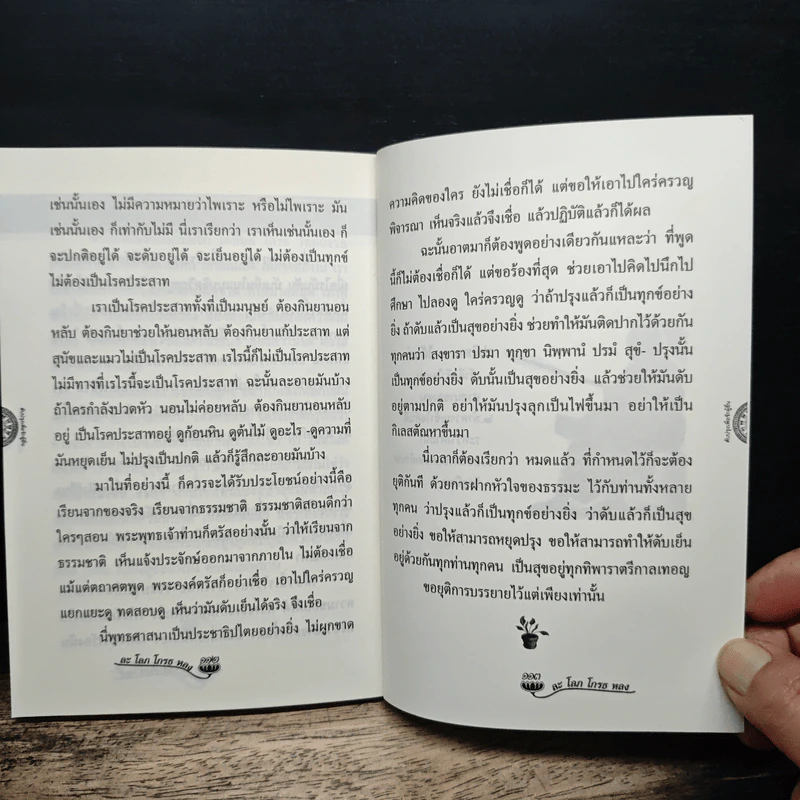 เช่นนั้นเอง ไม่มีความหมายว่าไพเราะ หรือไม่ไพเราะ มัน
เช่นนั้นเอง ก็เท่ากับไม่มี นี่เราเรียกว่า เราเห็นเช่นนั้นเอง ก็
จะปกติอยู่ได้ จะดับอยู่ได้ จะเย็นอยู่ได้ ไม่ต้องเป็นทุกข์
ไม่ต้องเป็นโรคประสาท
เราเป็นโรคประสาททั้งที่เป็นมนุษย์ ต้องกินยานอน
หลับ ต้องกินยาช่วยให้นอนหลับ ต้องกินยาแก้ประสาท แต่
สุนัขและแมวไม่เป็นโรคประสาท เรไรนี้ก็ไม่เป็นโรคประสาท
ไม่มีทางที่เรไรนี้จะเป็นโรคประสาท ฉะนั้นละอายมันบ้าง
ถ้าใครกำลังปวดหัว นอนไม่ค่อยหลับ ต้องกินยานอนหลับ
อยู่ เป็นโรคประสาทอยู่ ดูก้อนหิน ดูต้นไม้ ดูอะไร -ดูความที่
มันหยุดเย็น ไม่ปรุงเป็นปกติ แล้วก็รู้สึกละอายมันบ้าง
มาในที่อย่างนี้ ก็ควรจะได้รับประโยชน์อย่างนี้คือ
เรียนจากของจริง เรียนจากธรรมชาติ ธรรมชาติสอนดีกว่า
ใครๆสอน พระพุทธเจ้าท่านก็ตรัสอย่างนั้น ว่าให้เรียนจาก
ธรรมชาติ เห็นแจ้งประจักษ์ออกมาจากภายใน ไม่ต้องเชื่อ
แม้แต่ตถาคตพูด พระองค์ตรัสก็อย่าเชื่อ เอาไปใคร่ครวญ
แยกแยะดู ทดสอบดู เห็นว่ามันดับเย็นได้จริง จึงเชื่อ
นี่พุทธศาสนาเป็นประชาธิปไตยอย่างยิ่ง ไม่ผูกขาด
ละ โลภ โกรธ หลง ๑๑๒
ความคิดของใคร ยังไม่เชื่อก็ได้ แต่ขอให้เอาไปใคร่ครวญ
พิจารณา เห็นจริงแล้วจึงเชื่อ แล้วปฏิบัติแล้วก็ได้ผล
ฉะนั้นอาตมาก็ต้องพูดอย่างเดียวกันแหละว่า ที่พูด
นี้ก็ไม่ต้องเชื่อก็ได้ แต่ขอร้องที่สุด ช่วยเอาไปคิดไปนึกไป
ศึกษา ไปลองดู ใคร่ครวญดู ว่าถ้าปรุงแล้วก็เป็นทุกข์อย่าง
ยิ่ง ถ้าดับแล้วเป็นสุขอย่างยิ่ง ช่วยทำให้มันติดปากไว้ด้วยกัน
ทุกคนว่า สงฺขารา ปรมา ทุกฺขา นิพฺพานํ ปรมํ สุขํ- ปรุงนั้น
เป็นทุกข์อย่างยิ่ง ดับนั้นเป็นสุขอย่างยิ่ง แล้วช่วยให้มันดับ
อยู่ตามปกติ อย่าให้มันปรุงลุกเป็นไฟขึ้นมา อย่าให้เป็น
กิเลสตัณหาขึ้นมา
นี่เวลาก็ต้องเรียกว่า หมดแล้ว ที่กำหนดไว้ก็จะต้อง
ยุติกันที ด้วยการฝากหัวใจของธรรมะ ไว้กับท่านทั้งหลาย
ทุกคน ว่าปรุงแล้วก็เป็นทุกข์อย่างยิ่ง ว่าดับแล้วก็เป็นสุข
อย่างยิ่ง ขอให้สามารถหยุดปรุง ขอให้สามารถทำให้ดับเย็น
อยู่ด้วยกันทุกท่านทุกคน เป็นสุขอยู่ทุกทิพาราตรีกาลเทอญ
ขอยุติการบรรยายไว้แต่เพียงเท่านั้น
๑๑๓ ละ โลภ โกรธ หลง